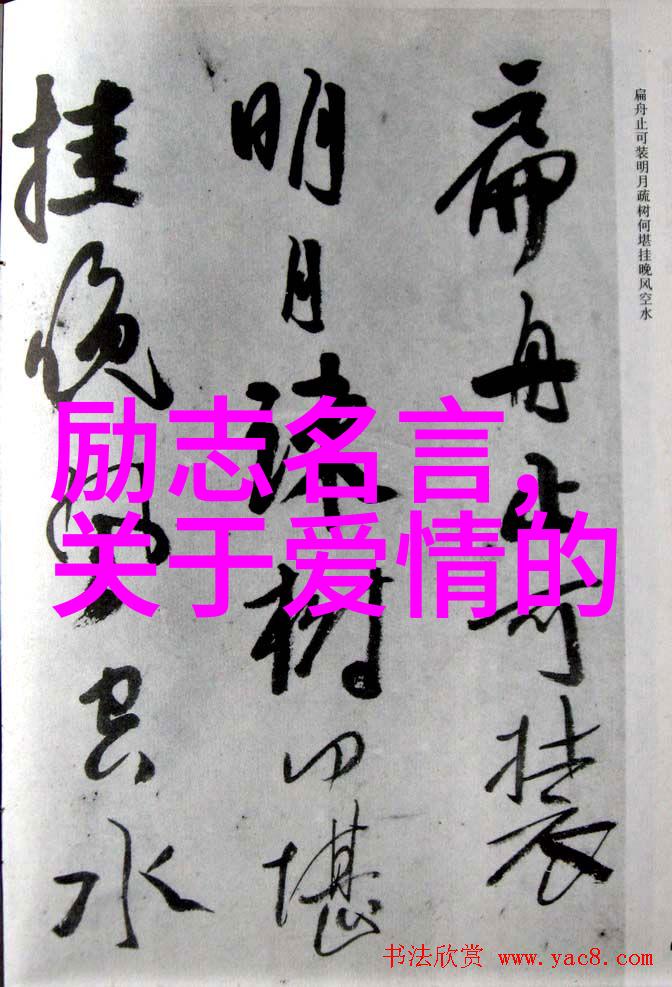 扁舟止可装
明月疏树何堪
挂晚风空水
扁舟止可装明月疏树何堪挂晚风空水
励志名言,
关于爱情的
书法欣赏 www.yac8.com